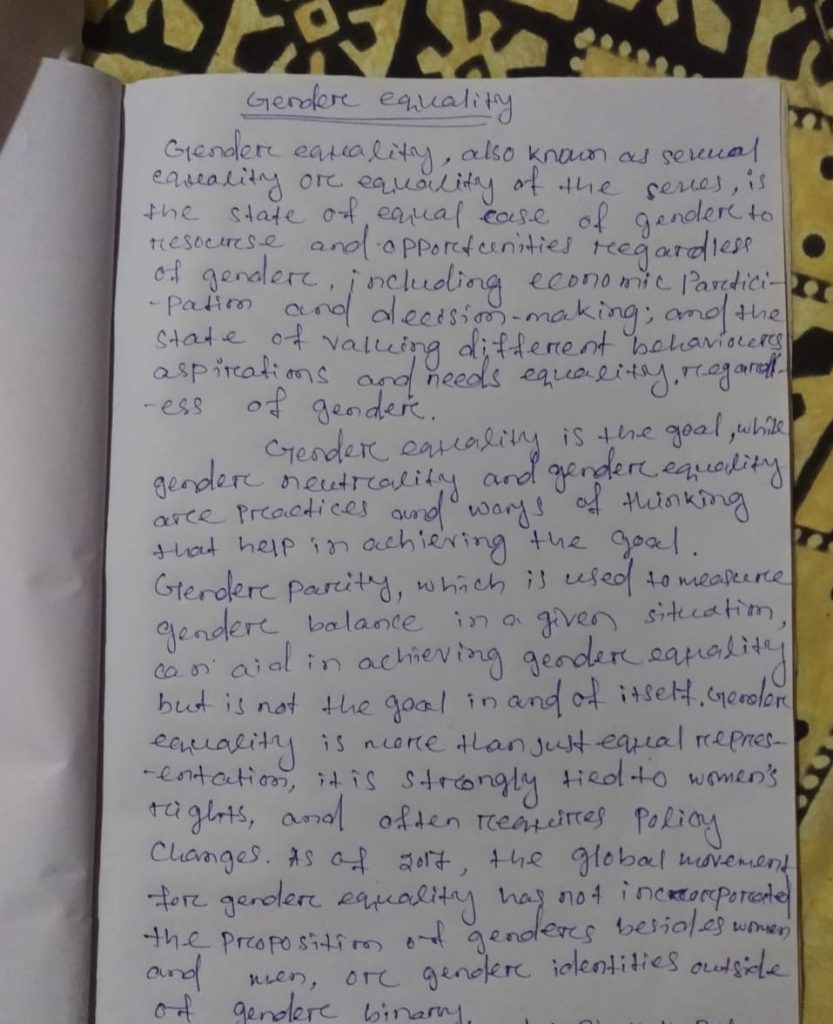 Gender equality
Gender equality, also known as sexual
equality or equality of the sexes, is
the state of equal ease of gender to
resourse and opportunities regardless
of gender, including economic Partici-
-pation and decision-making; and the
state of valuing different behaviours
aspirations and needs equality, regardl-
-ess of gender.
Gender equality is the goal, while
gender neutrality and gender equality
are practices and ways of thinking
that help in achieving the goal.
Gender parity, which is used to measure
gender balance in a given situation,
can aid in achieving gender equality
but is not the goal in and of itself. Gender
equality is more than just equal repres-
-entation, it is strongly tied to women's
rights, and often requires policy
Changes. As of 2017, the global movement
for gender equality has not incorporated
the proposition of genders besides women
and men, or gender identities outside
of gender binary.